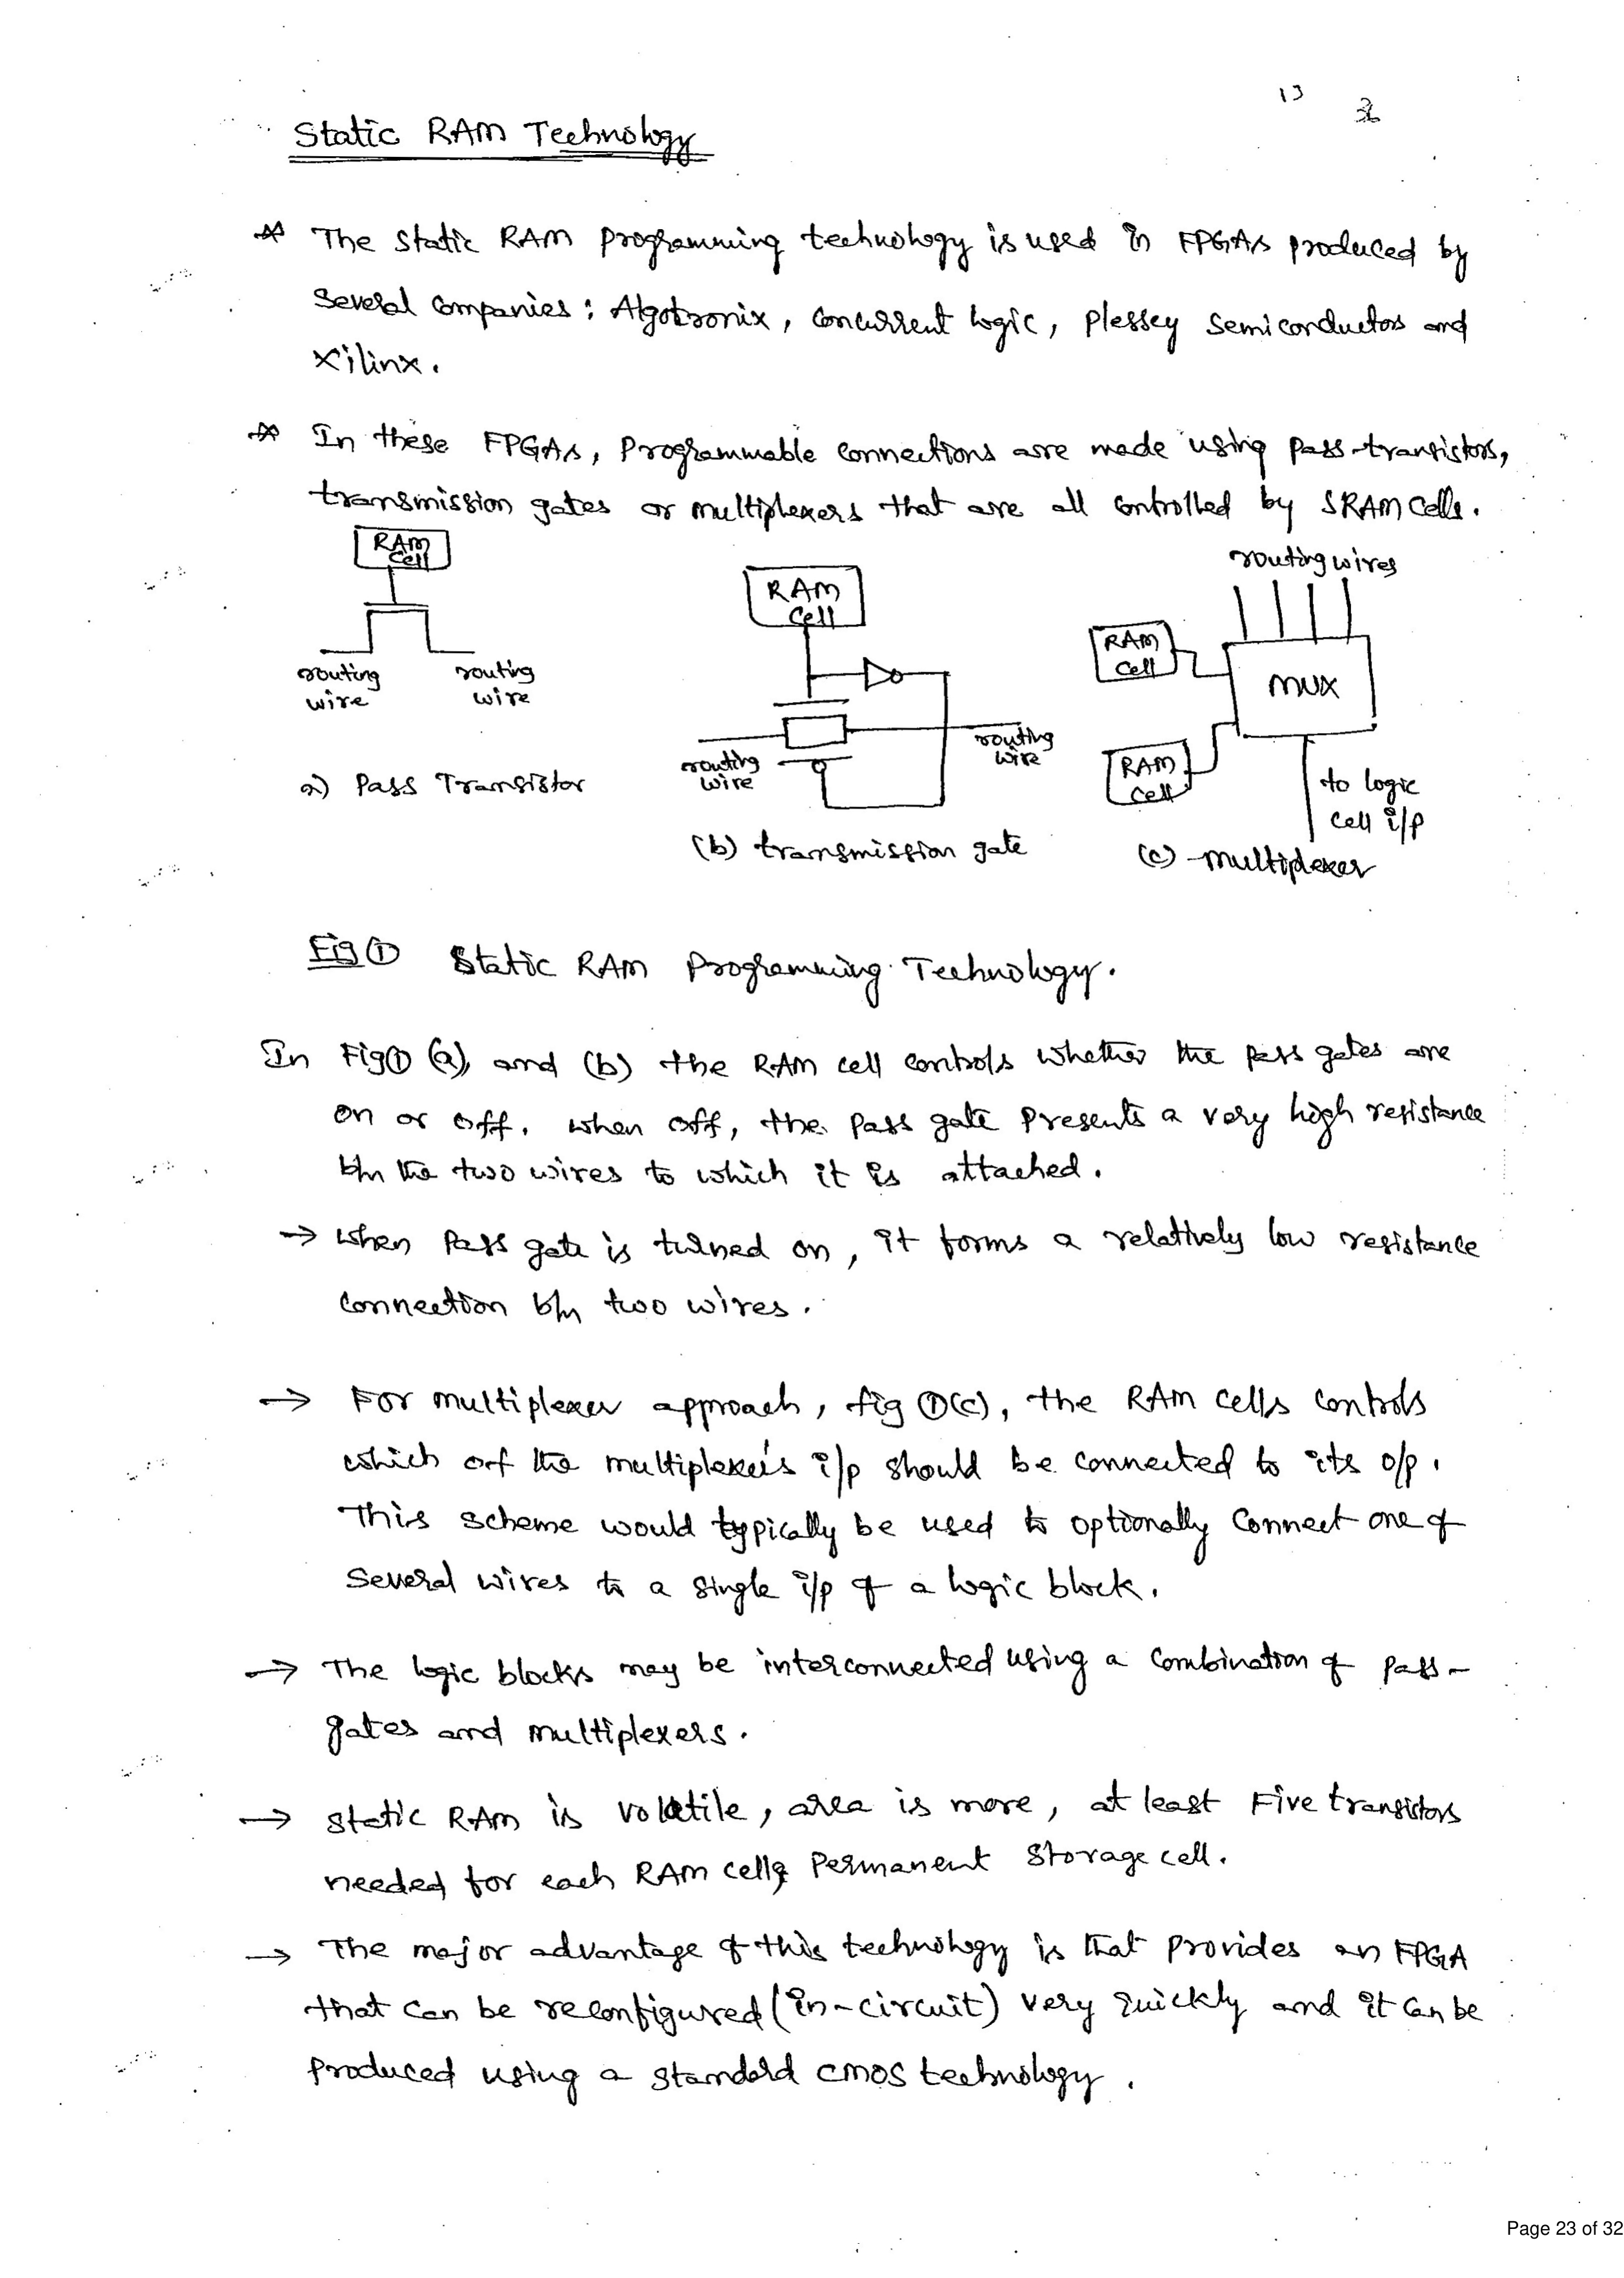 13
Static RAM Technology
* The Static RAM programming technology is used in FPGAs produced by
several companies : Algotronix, concurrent logic, plessey semiconductors and
xilinx.
* In these FPGAs, programmable connections are made using pass-transistors,
transmission gates or multiplexers that are all controlled by SRAM cells.
RAM
cell
routing
wire
routing
wire
a) Pass Transistor
RAM
cell
routing
wire
routing
wire
(b) transmission gate
routing wires
RAM
cell
MUX
RAM
cell
to logic
cell i/p
(c) multiplexer
Fig ① Static RAM Programming Technology.
In Fig① (a), and (b) the RAM cell controls whether the pass gates are
on or off. when off, the pass gate presents a very high resistance
b/n the two wires to which it is attached.
→ when pass gate is turned on, it forms a relatively low resistance
connection b/n two wires.
→ For multiplexer approach, fig ①(c), the RAM cells controls
which of the multiplexer's i/p should be connected to its o/p.
This scheme would typically be used to optionally connect one of
several wires to a single i/p of a logic block.
→ The logic blocks may be interconnected using a combination of pass-
gates and multiplexers.
→ static RAM is volatile, area is more, at least Five transistors
needed for each RAM cell Permanent storage cell.
→ The major advantage of this technology is that provides an FPGA
that can be reconfigured (in-circuit) very quickly and it can be
produced using a standard cmos technology.
Page 23 of 32